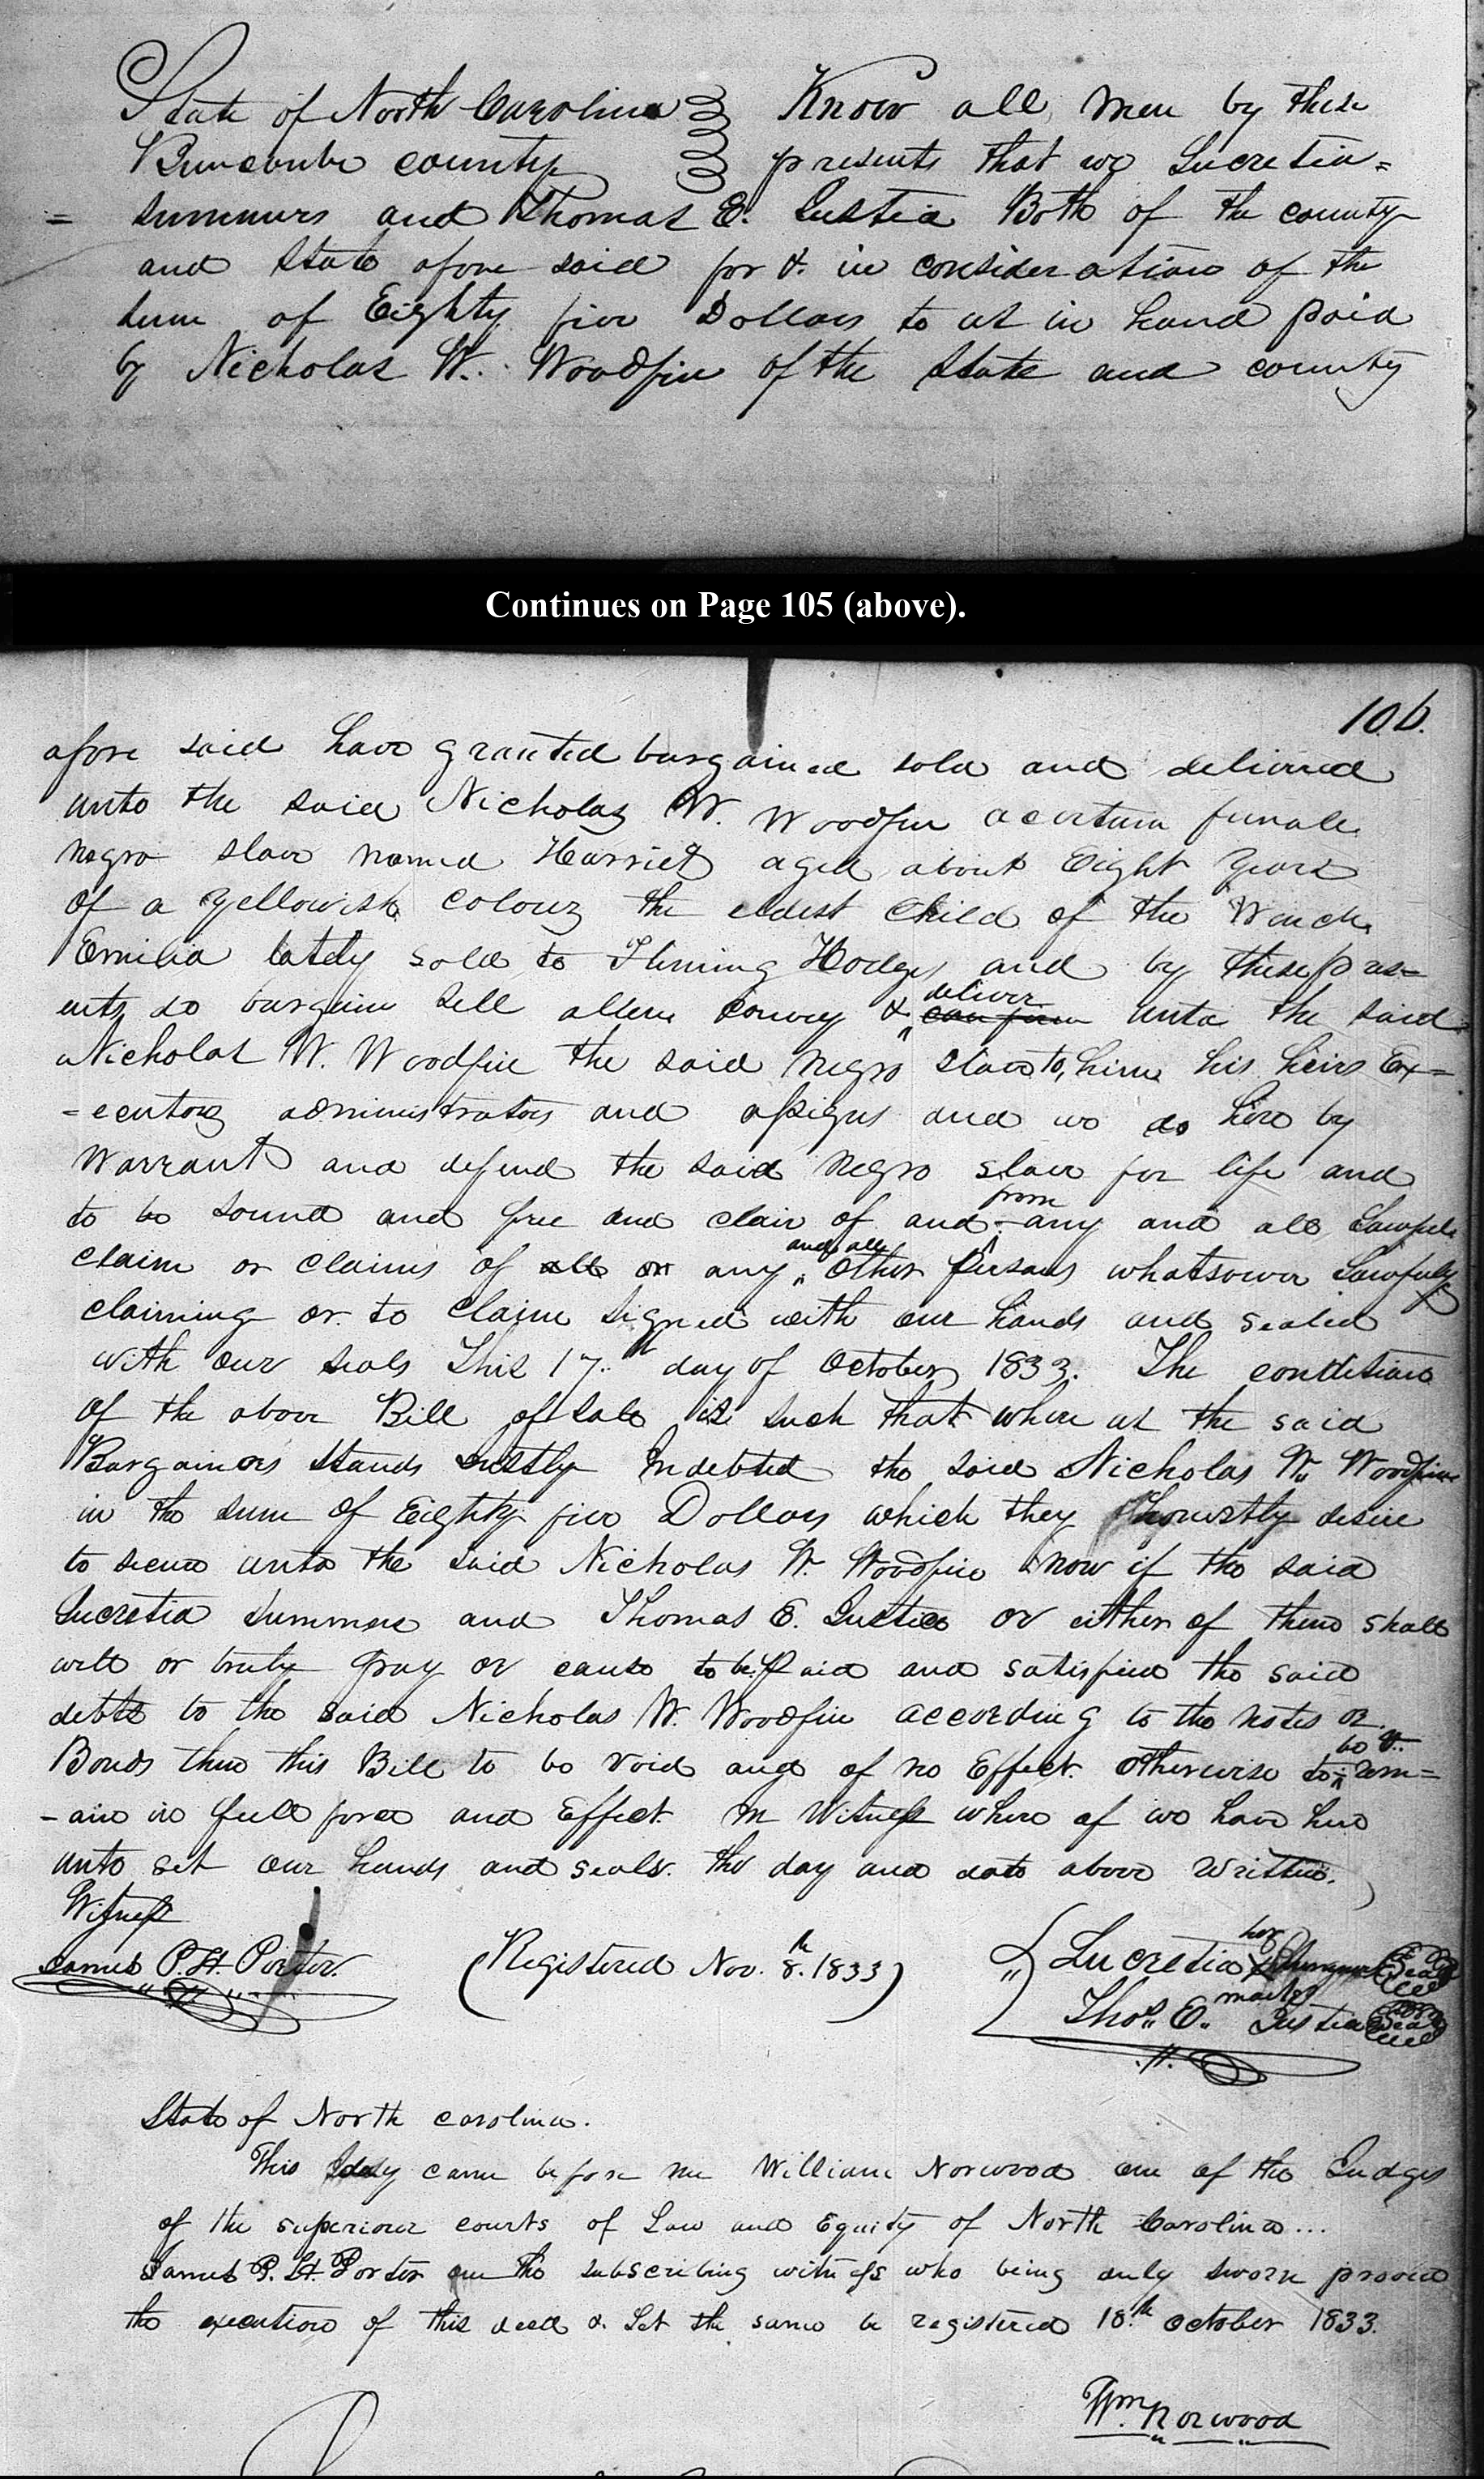 State of North Carolina } Know all men by these
Buncombe county } presents that we Lucretia=
= Summurs and Thomas E. Justia Both of the county
and State afore said for & in consideration of the
sum of Eighty five Dollars to us in hand paid
by Nicholas W. Woodfin of the State and county
Continues on Page 105 (above).
106.
afore said have granted bargained sold and delivered
unto the said Nicholas W. Woodfin a certain female
negro slave named Harriet aged about Eight years
of a yellowish colour the eldest child of the Wench
Emilia lately sold to Fleming Hodges and by these pres=
ents do bargain sell allien convey & deliver confirm unto the said
Nicholas W. Woodfin the said negro slave to, him his heirs Ex=
=ecutors administrators and assigns and we do here by
Warrant and defend the said negro slave for life and
to be sound and free and clair of and from any and all Lawful
claim or claims of all or any and all other persons whatsoever Lawfully
claiming or to claim signed with our hands and sealed
with our seals This 17th day of October 1833. The conditions
of the above Bill of Sale is such that where as the said
Bargainors stands Justly Indebted the said Nicholas W. Woodfin
in the sum of Eighty five Dollars which they honestly desire
to secure unto the said Nicholas W. Woodfin now if the said
Lucretia Summurs and Thomas E. Justice or either of them shall
well or truly pay or cause to be paid and satisfied the said
debts to the said Nicholas W. Woodfin according to the notes or
Bonds then this Bill to be void and of no Effect. otherwise to be & rem=
-ain in full force and Effect. In Witness where of we have here
unto set our hands and seals. the day and date above written.
Witness
James P. H. Porter. (Registered Nov. 8th. 1833) Lucretia her X mark Summurs Seal
Thos. E. Justia Seal
State of North carolina.
This day came before me William Norwood one of the Judges
of the superiour courts of Law and Equity of North Carolina...
James P. H. Porter one the subscribing witness who being duly sworn proved
the execution of this deed & Let the same be registered 18th October 1833.
Wm. Norwood